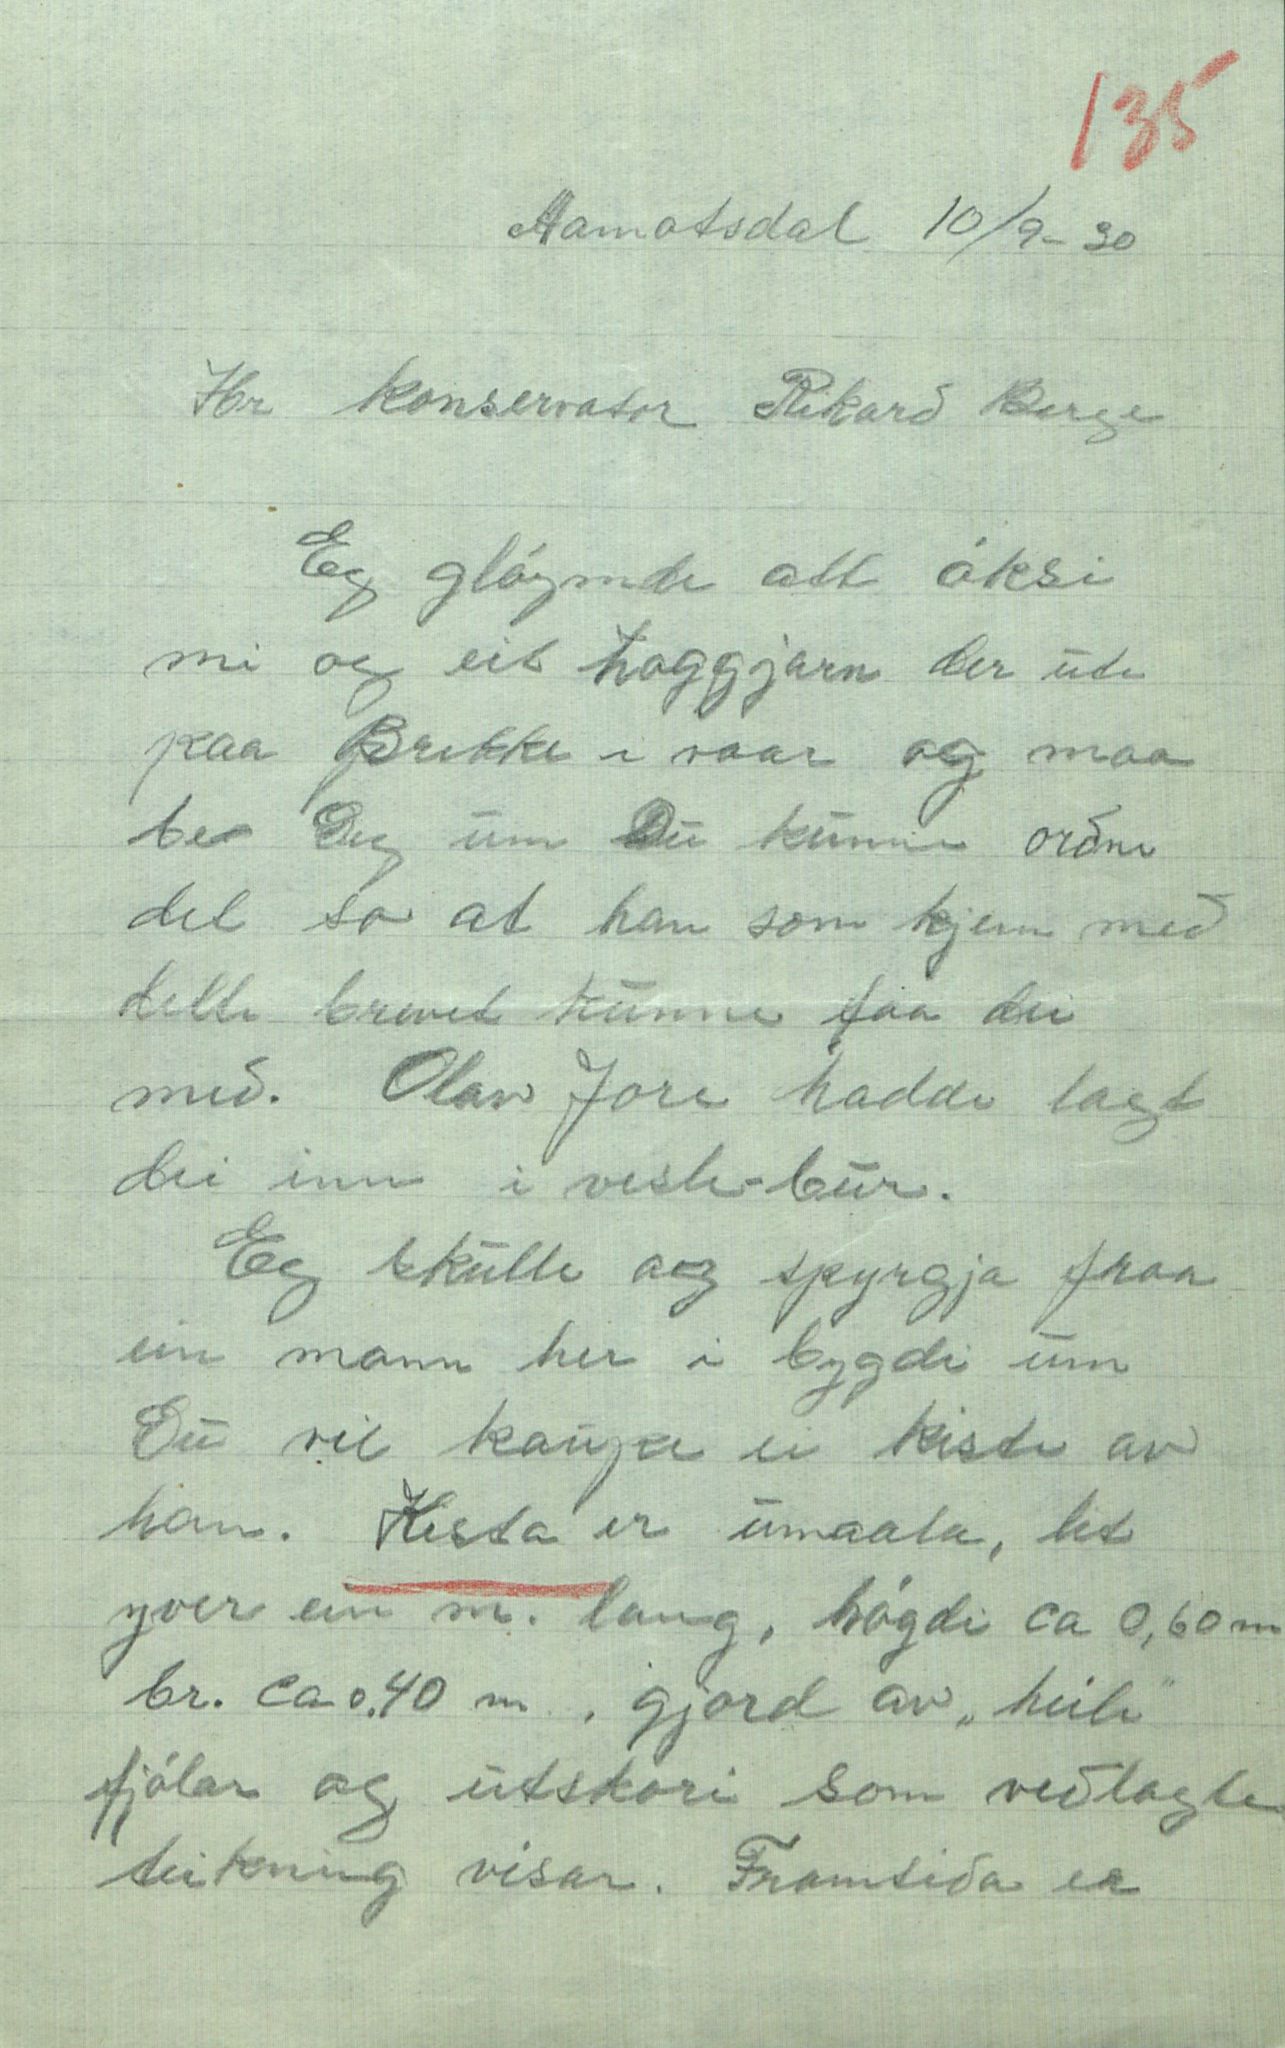 135
Aamotsdal 10/9-30
Hr konservator Rikard Berge
Eg gløymde att øksi
mi og eit hoggjarn der ute
paa Brekke i vaar og maa
be Deg um Du kunne ordne
det so at han som kjem med
dette brevet kunne faa dei
med. Olav Jore hadde lagt
dei inn i vesle-bur.
Eg skulle og spyrgja fraa
ein mann her i bygdi um
Du vil kaupe ei kiste av
han. Kista er umaala, let
yver ein m. lang, høgdi ca 0,60 m
br. ca 0,40 m. gjord av „heile"
fjølar og utskori som vedlagte
teikning visar. Framsida er